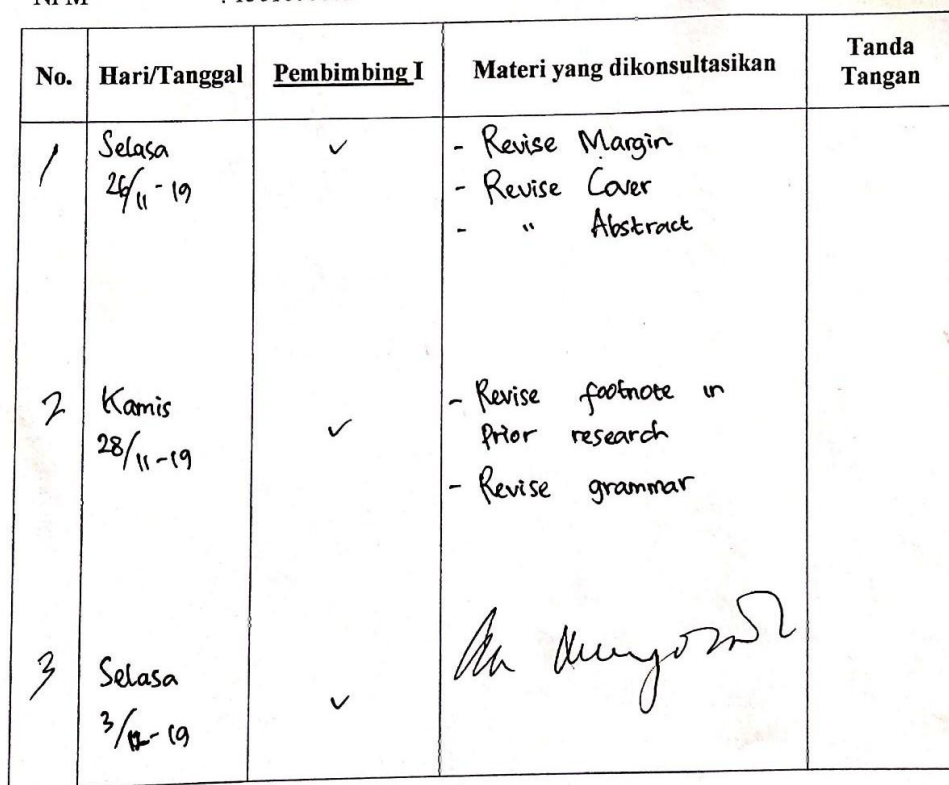 No. Hari/Tanggal Pembimbing I Materi yang dikonsultasikan Tanda
Tangan
1 Selasa ✓ - Revise Margin
26/11-19 - Revise Cover
- " Abstract
2 Kamis ✓ - Revise footnote in
28/11-19 Prior research
- Revise grammar
3 Selasa ✓
3/12-19